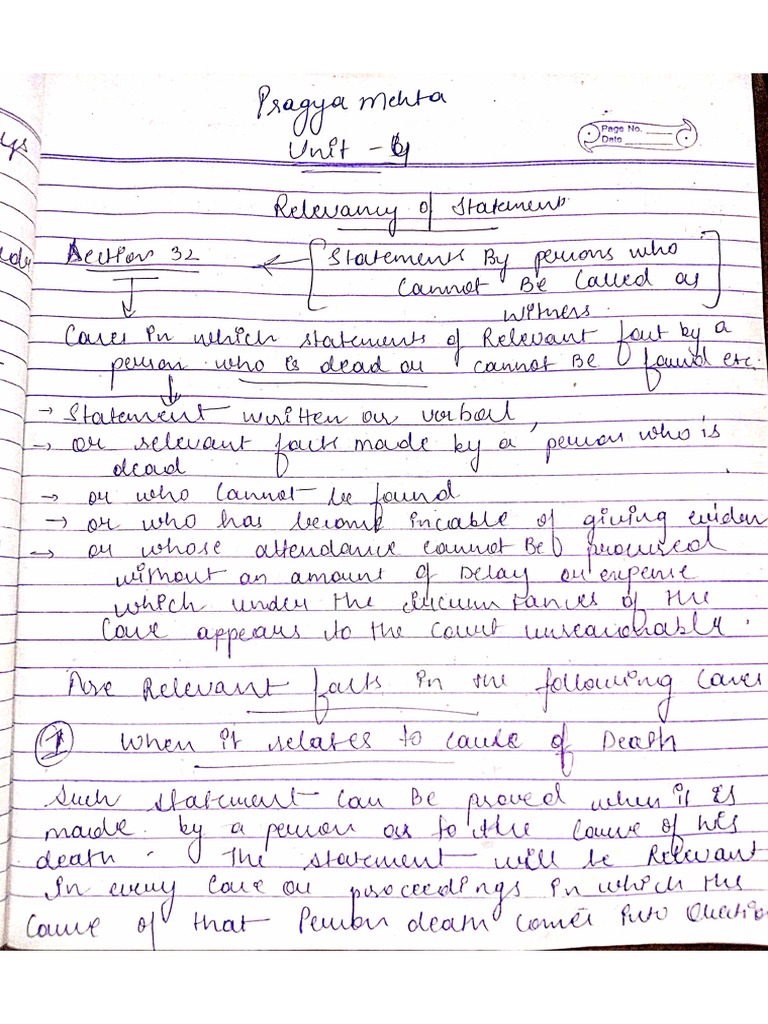 Pragya Mehta
Page No.
Date
Unit -
Relevancy of Statement
Section 32 ← [Statements By persons who
cannot Be Called as
witness.]
Cases in which statements of Relevant fact by a
person who is dead or cannot Be found etc.
→ Statement written or verbal,
→ or relevant facts made by a person who is
dead
→ or who cannot be found
→ or who has become incapable of giving eviden
→ or whose attendance cannot Be procured
without an amount of Delay or expense
which under the circumstances of the
Case appears to the court unreasonable.
Are Relevant facts in the following Cases
1 When it relates to cause of Death
Such statement can Be proved when it is
made by a person as to the Cause of his
death. The statement will be Relevant
in every Case or proceedings in which the
Cause of that Person death comes into Question